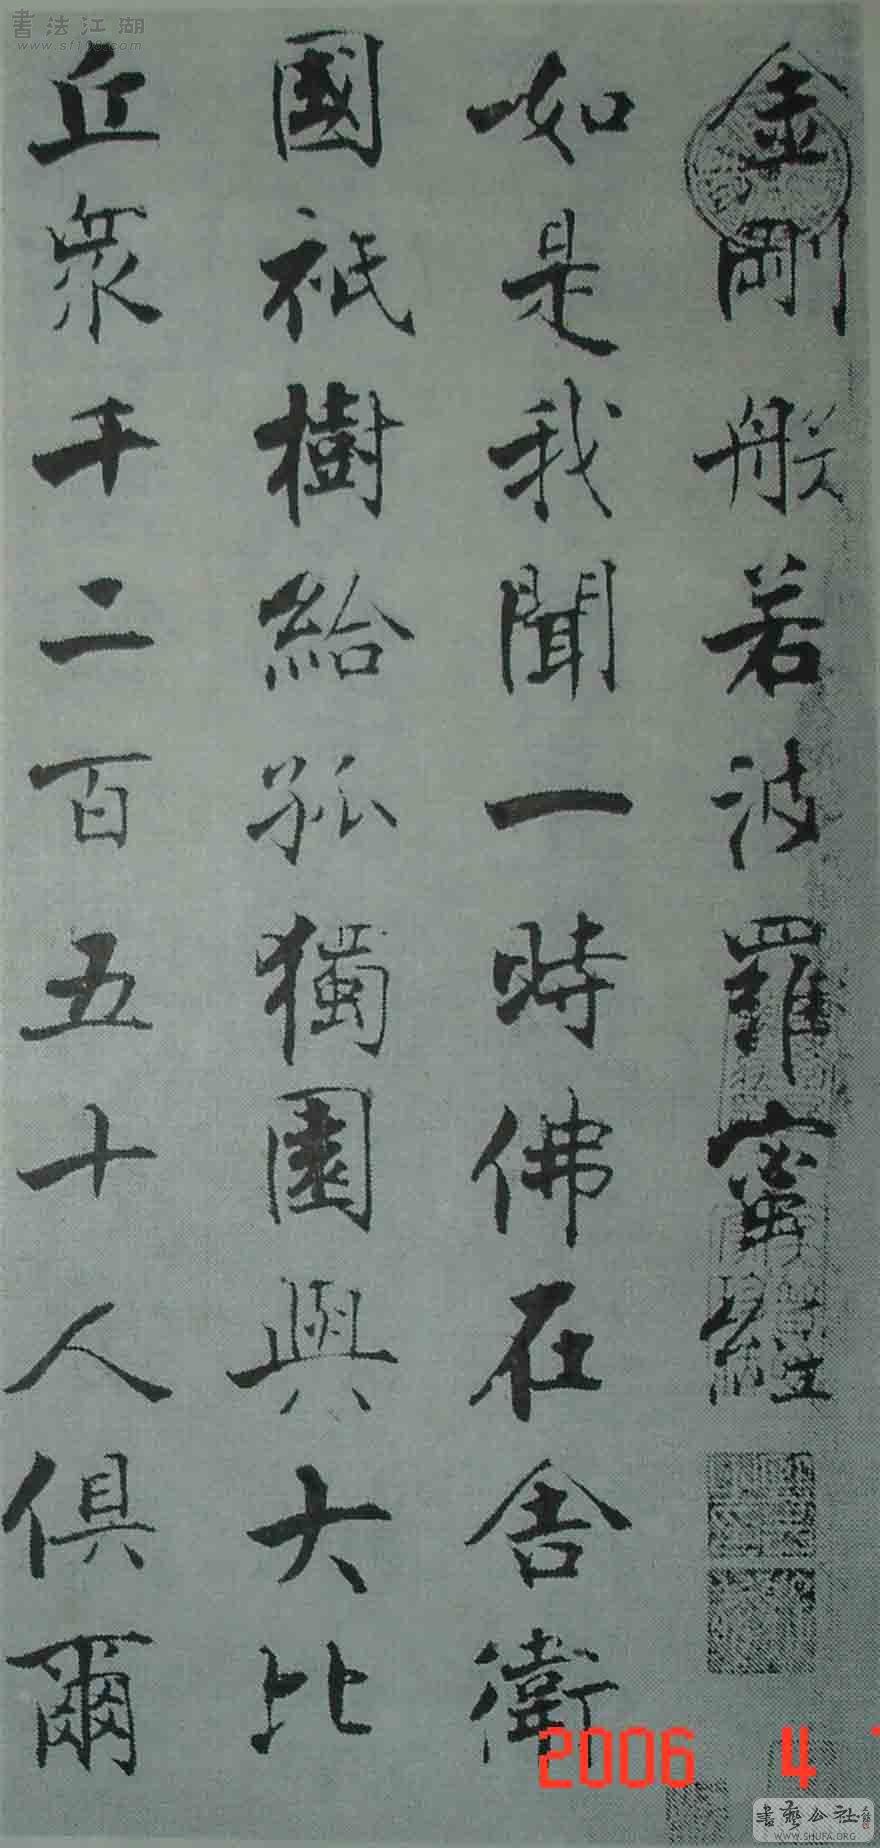 金剛般若波羅蜜經
如是我聞一時佛在舍衛
國祇樹給孤獨園與大比
丘衆千二百五十人俱爾
書法江湖
www.sf108.com
2006 4
書藝公社
WWW.SHUFA.ORG